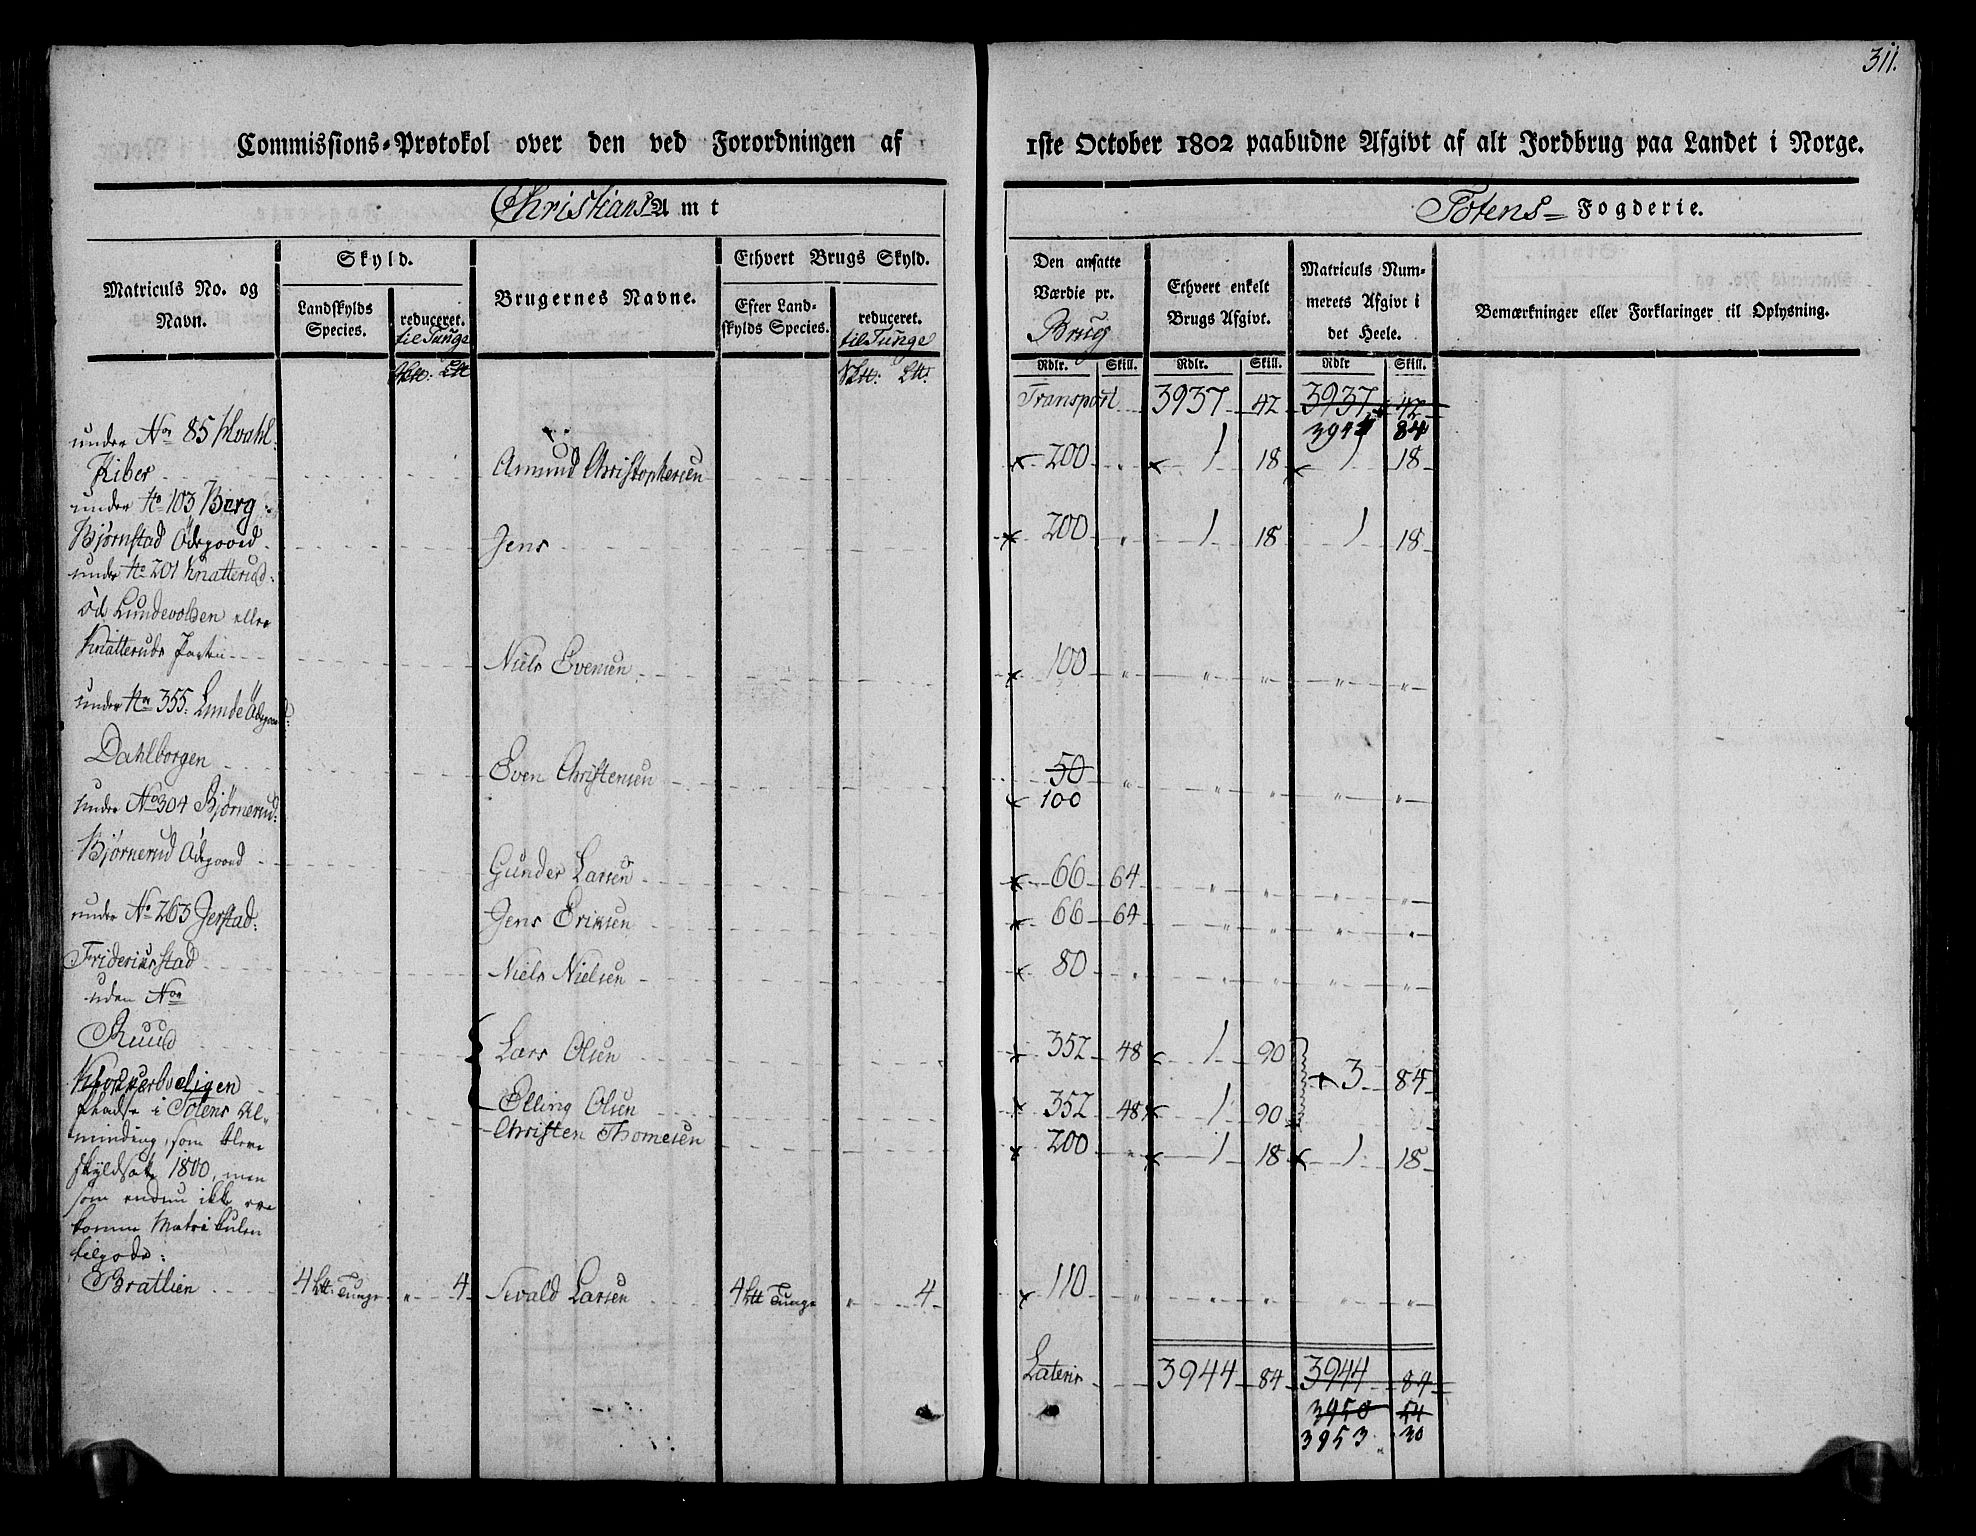 311.
Commissions-Protokol over den ved Forordningen af 1ste October 1802 paabudne Afgivt af alt Jordbrug paa Landet i Norge.
Christians Amt
Totens Fogderie.
Matriculs No. og Navn.
Skyld.
Landskylds Species.
reduceret. til Tunge
Brugernes Navne.
Ethvert Brugs Skyld.
Efter Landskylds Species.
reduceret. til Tunge
Den ansatte Værdie pr. Brug
Ethvert enkelt Brugs Afgivt.
Matriculs Nummerets Afgivt i det Heele.
Bemærkninger eller Forklaringer til Oplysning.
Rdlr. Skill. Rdlr. Skill. Rdlr Skill.
Transport 3937 42 3937 42
3941 84
under No 85 Hvahl.
Kiber Amund Christophersen 200 " 1 18 1 18
under No 103 Berg:
Bjørnstad Ödegaard Jens 200 " 1 18 1 18
under No 201 Knatterud:
Öd Lundevolden eller
Knatteruds Jorten Niels Evensen 100 " " " " "
under No 355. Lunde Ödegaard:
Dahlborgen Even Christensen 50 " " " " "
100
under No 304 Bjørnerud:
Bjørnerud Ödegaard Gunder Larsen 66 64 " " " "
under No 263 Jerstad: Jens Eriksen 66 64 " " " "
Frideriksstad Niels Nielsen 80 " " " " "
uden No
Ruud Lars Olsen 352 48 1 90 3 84
Klopperboeligen Elling Olsen 352 48 1 90
Christen Thomesen 200 " 1 18 1 18
Pladse i Totens Al-
minding, som bleve
skyldsat 1800, men
som endnu ikke ere
komne Matrikulen
tilgode:
Bratlien 4 Ltt: Tunge " 4 Sivald Larsen 4 Ltt Tunge " 4 110 " " " " "
Lateris 3944 84 3944 84
3950 54
3953 30